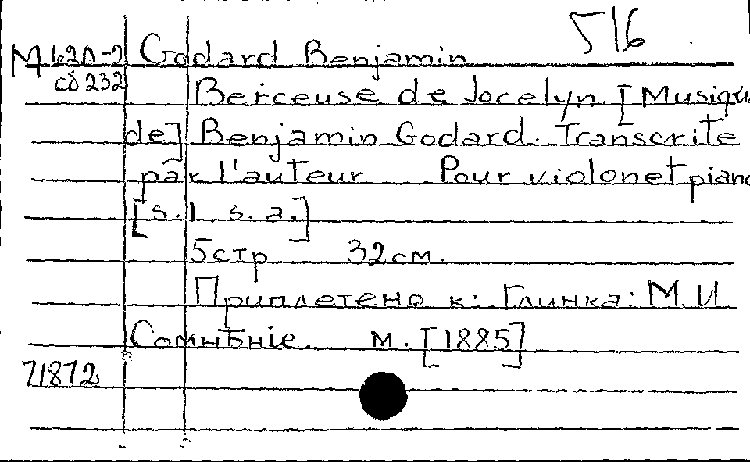 516
М 420-2 Godard Benjamin
сб 232 Berceuse de Jocelyn [Musique
de] Benjamin Godard. Transcrite
par l'auteur Pour violon et piano
[s. l. s. a.]
5 стр 32 см.
Приплетено к: Глинка: М. И
Сомнѣніе. М. [1885]
71872